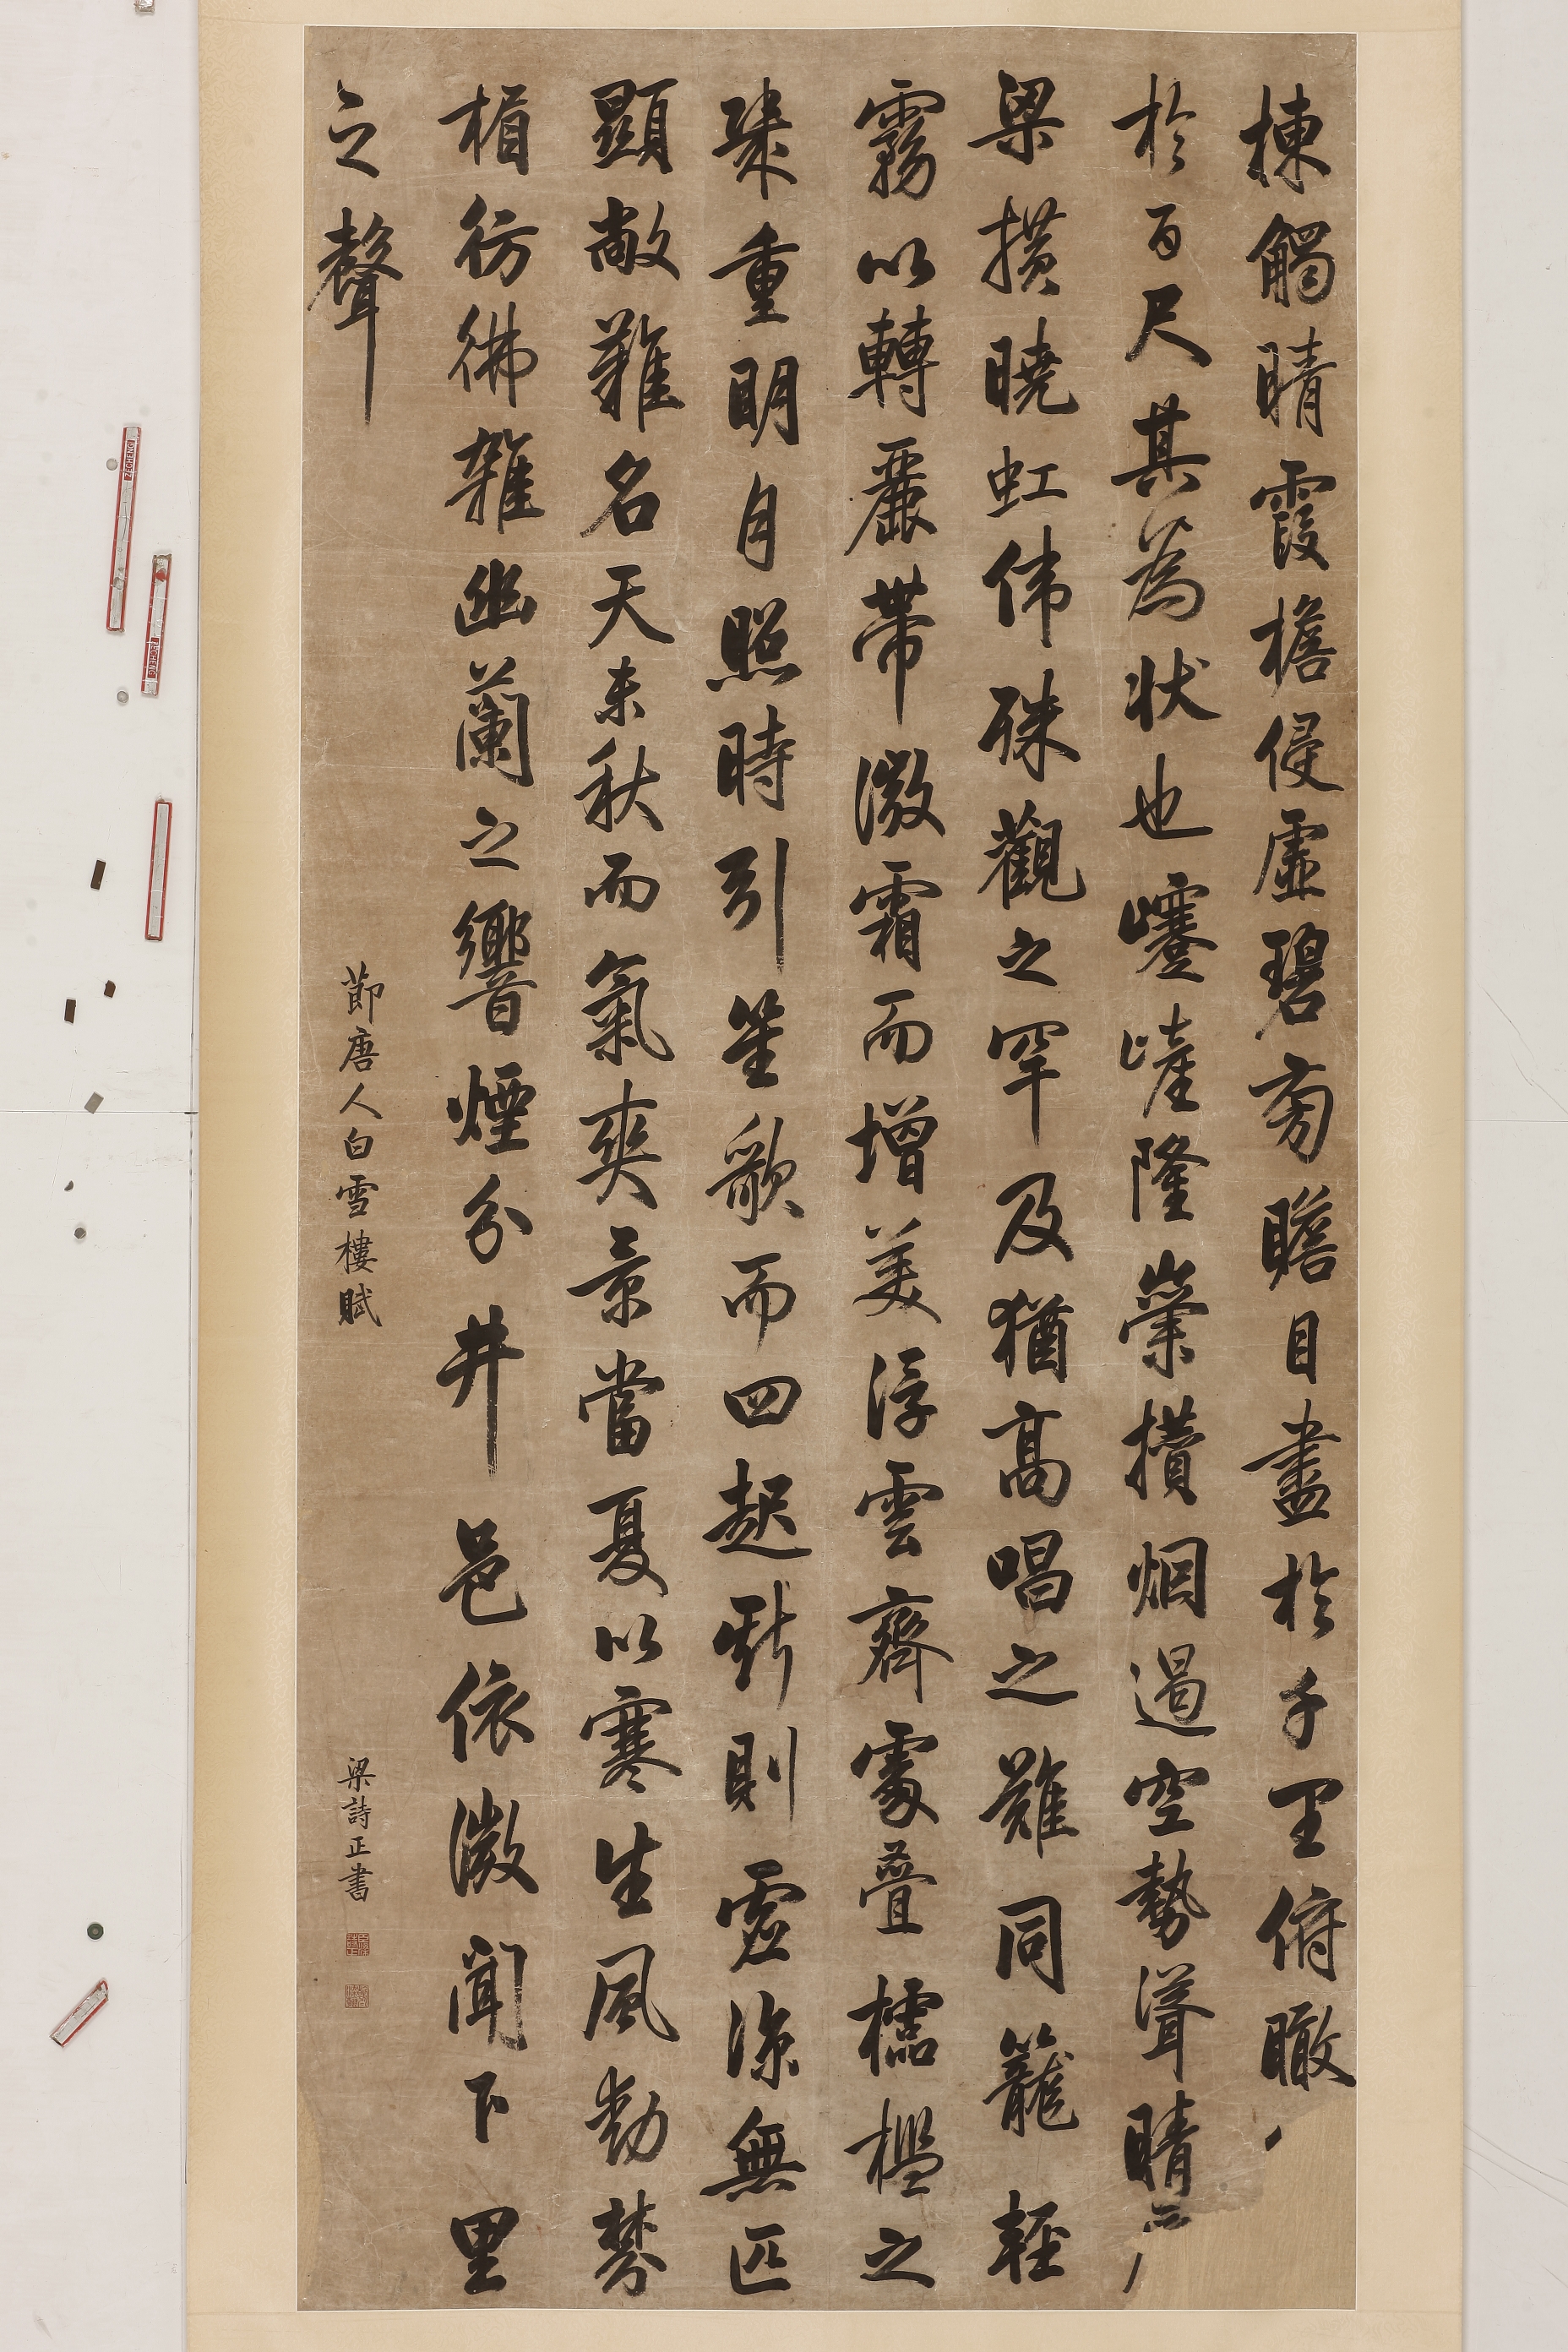 棟觸晴霞檐侵虛碧旁瞻目盡於千里俯瞰
於百尺其為狀也㠍嵼隆崇攢烟遏空勢聳晴
梁摸曉虹偉殊觀之罕及猶高唱之難同籠輕
霧以轉麗帶微霜而增美浮雲齊處疊櫺檻之
幾重明月照時引笙歌而四起斯則虛涼無匹
顯敞難名天未秋而氣爽景當夏以寒生風動棼
楣彷彿雜幽蘭之響煙分井邑依微聞下里
之聲
節唐人白雪樓賦
梁詩正書